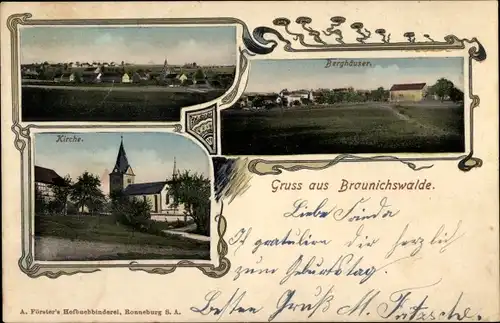 Berghäuser.
Kirche.
Gruss aus Braunichswalde.
Liebe Frieda
Ich gratuliere dir herzlich
zum Geburtstag.
Besten Gruß M. Fritzsche.
A. Förster's Hofbuchbinderei, Ronneburg S. A.